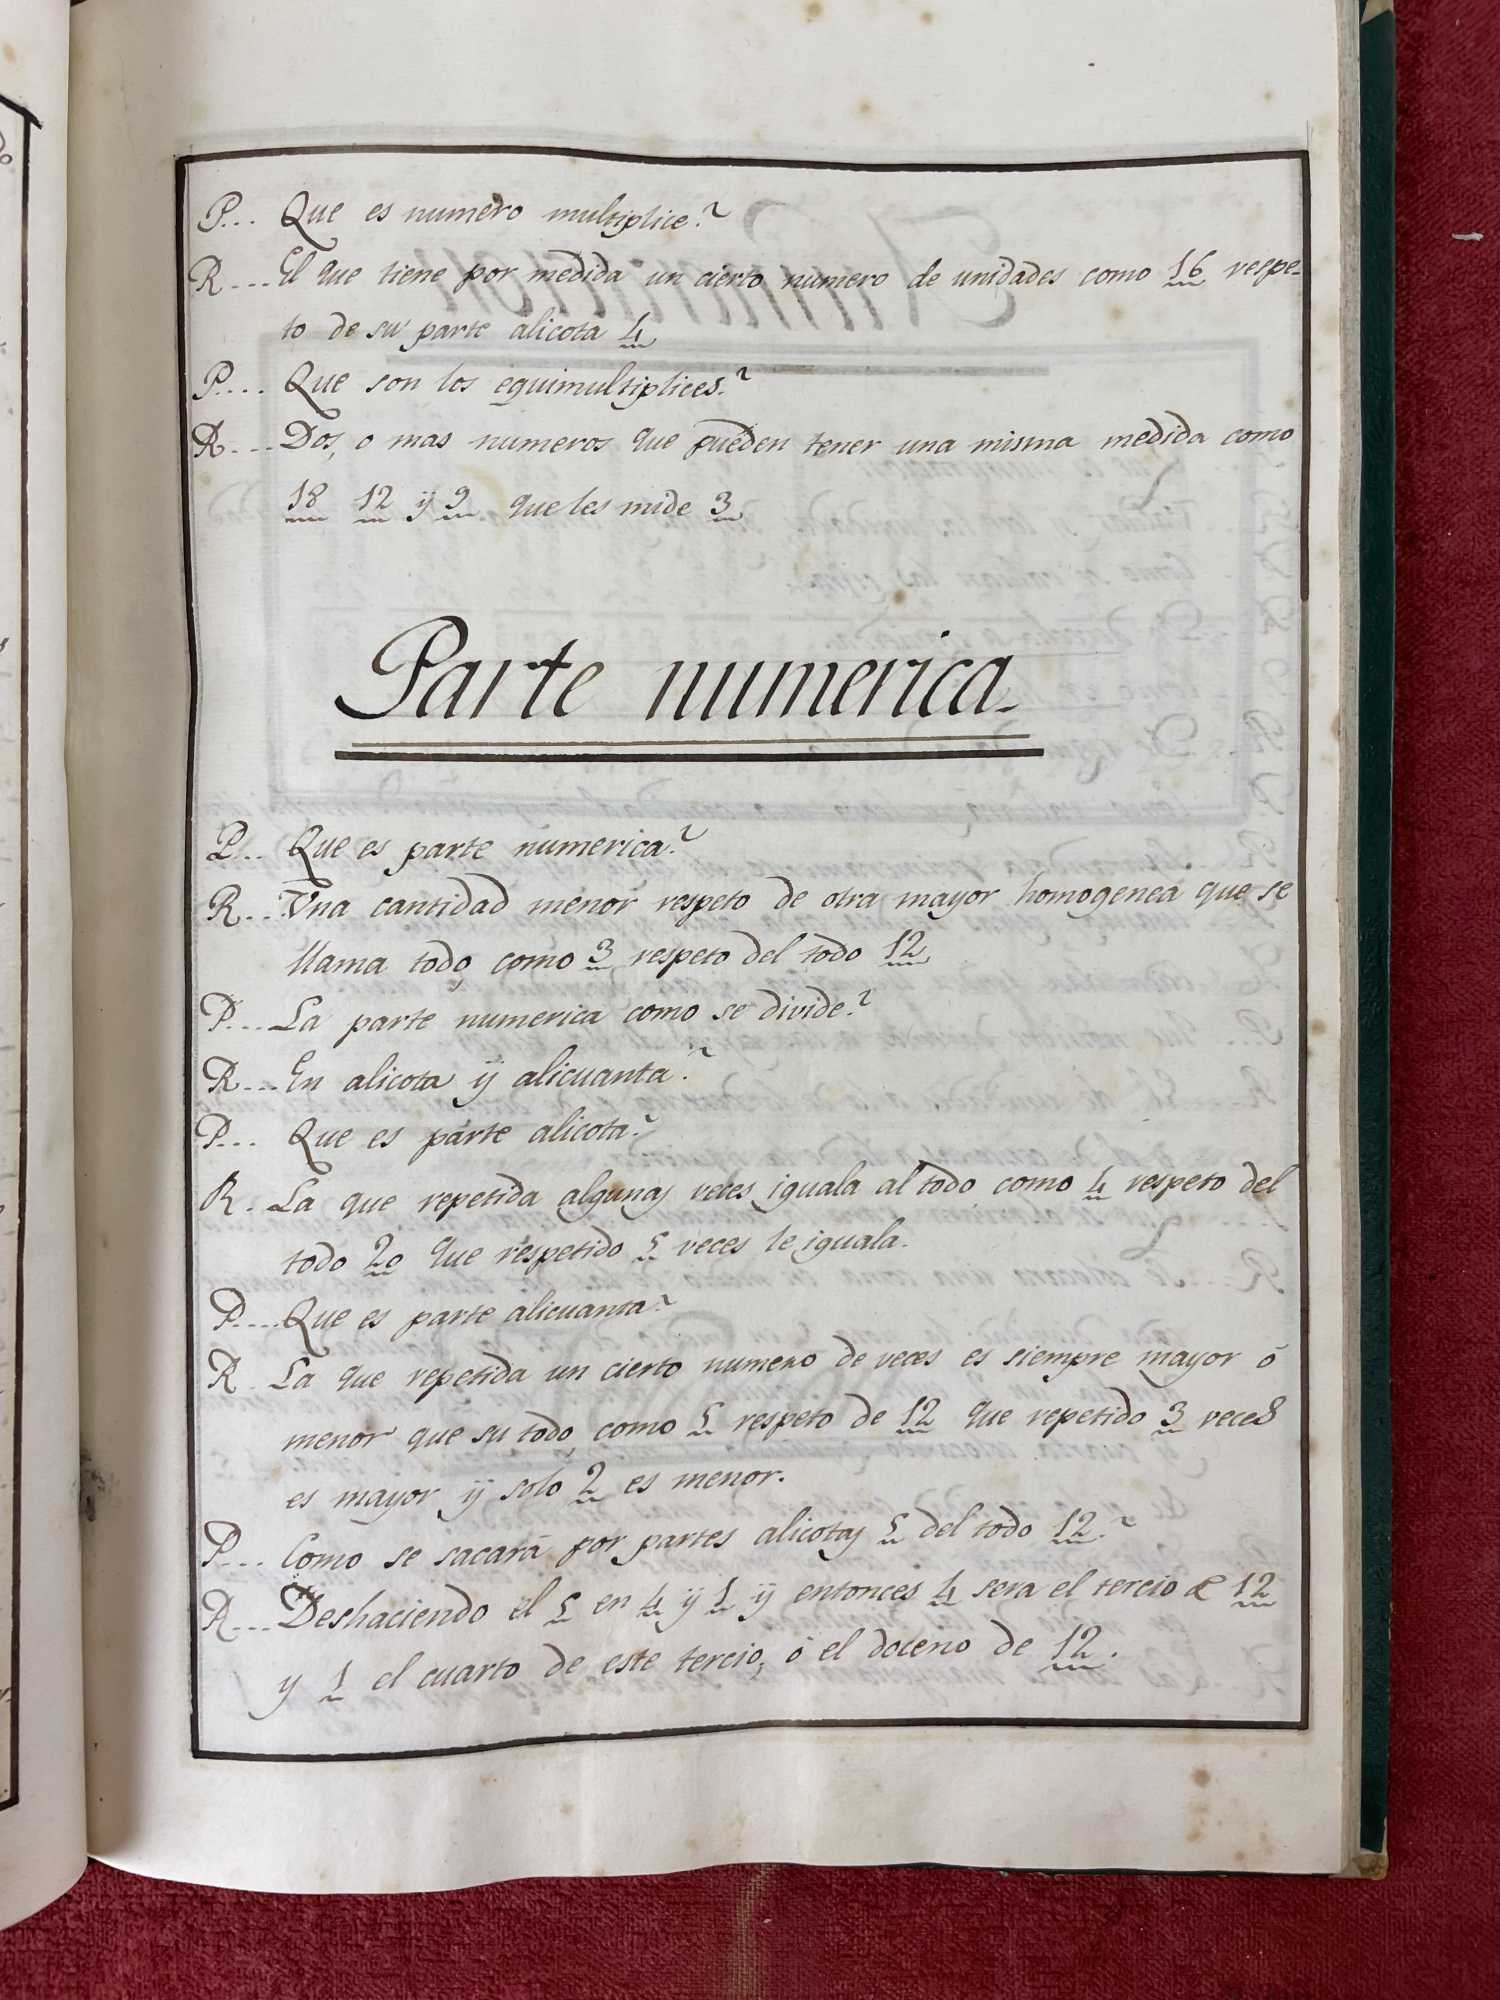 P... Que es numero multiplice?
R.... El que tiene por medida un cierto numero de unidades como 16 respe-
to de su parte alicota 4
P.... Que son los equimultiplices?
R.... Dos, o mas numeros que pueden tener una misma medida como
18 12 ÿ 9 que les mide 3
Parte numerica.
P... Que es parte numerica?
R... Vna cantidad menor respeto de otra mayor homogenea que se
llama todo, como 3 respeto del todo 12
P... La parte numerica como se divide?
R... En alicota ÿ alicuanta?
P... Que es parte alicota?
R. La que repetida algunas veces iguala al todo como 4 respeto del
todo 20 que respetido 5 veces le iguala.
P.... Que es parte alicuanta?
R. La que repetida un cierto numero de veces es siempre mayor ó
menor que su todo, como 5 respeto de 12 que repetido 3 veces
es mayor ÿ solo 2 es menor.
P.... Como se sacará por partes alicotas 5 del todo 12?
R... Deshaciendo el 5 en 4 ÿ 1 ÿ entonces 4 sera el tercio de 12
y 1 el cuarto de este tercio, ó el doceno de 12.